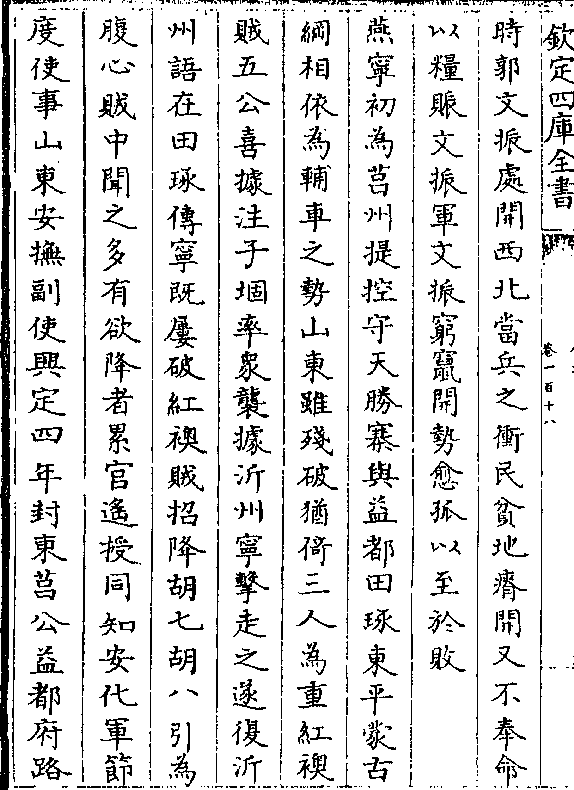 欽定四庫全書
卷一百十八
時郭文振處開西北當兵之衝民貧地瘠開又不奉命
以糧賑文振軍文振窮竄開勢愈孤以至於敗
燕寧初為莒州提控守天勝寨與益都田琢東平蒙古
綱相依為輔車之勢山東雖殘破猶倚三人為重紅襖
賊五公喜據注子堌率衆襲據沂州寧擊走之遂復沂
州語在田琢傳寧既屢破紅襖賊招降胡七胡八引為
腹心賊中聞之多有欲降者累官遙授同知安化軍節
度使事山東安撫副使興定四年封東莒公益都府路